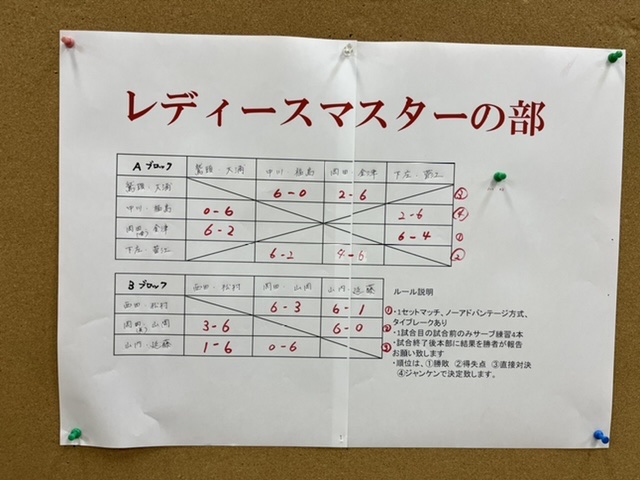 レディースマスターの部
Aブロック 大浦 中川・福島 内田・金津 下左・菅江
大浦 6-0 2-6 ③
中川・福島 0-6 2-6 ④
内田・金津 6-2 6-4 ①
下左・菅江 6-2 4-6 ②
Bブロック 西田・松村 岡田・山岡 山内・近藤
西田・松村 6-3 6-1 ①
岡田・山岡 3-6 6-0 ②
山内・近藤 1-6 0-6 ③
ルール説明
・1セットマッチ、ノーアドバンテージ方式、
タイブレークあり
・1試合目の試合前のみサーブ練習4本
・試合終了後本部に結果を勝者が報告
お願い致します
・順位は、①勝敗 ②得失点 ③直接対決
④ジャンケンで決定致します。